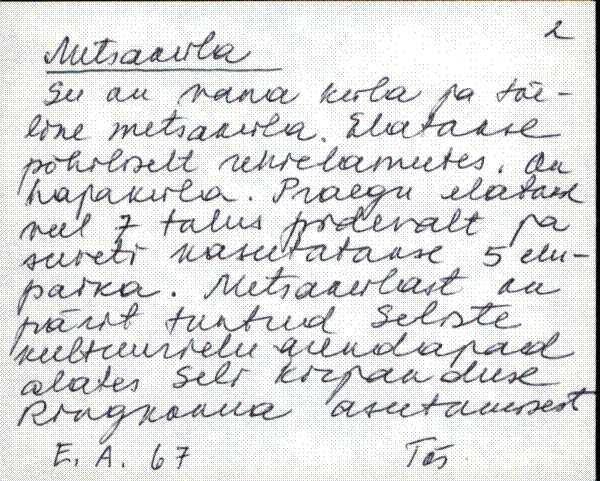 2
Metsaküla
See on vana küla ja tõe-
line metsaküla. Elatakse
põhiliselt rehielamutes. On
hajaküla. Praegu elatakse
veel 7 talus pidevalt ja
suveti kasutatakse 5 elu-
paika. Metsakülast on
pärit tuntud Seliste
kultuurielu arendajaid
alates Seli Kirjanduse
Ringkonna asutamisest
E. A. 67